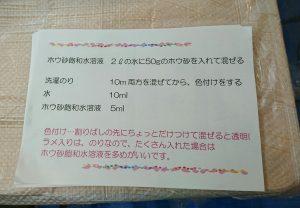 ホウ砂飽和水溶液 2ℓの水に50gのホウ砂を入れて混ぜる
洗濯のり 10m 両方を混ぜてから、色付けをする
水 10ml
ホウ砂飽和水溶液 5ml
色付け…割りばしの先にちょっとだけつけて混ぜると透明!
ラメ入りは、のりなので、たくさん入れた場合は
ホウ砂飽和水溶液を多めがいいです。